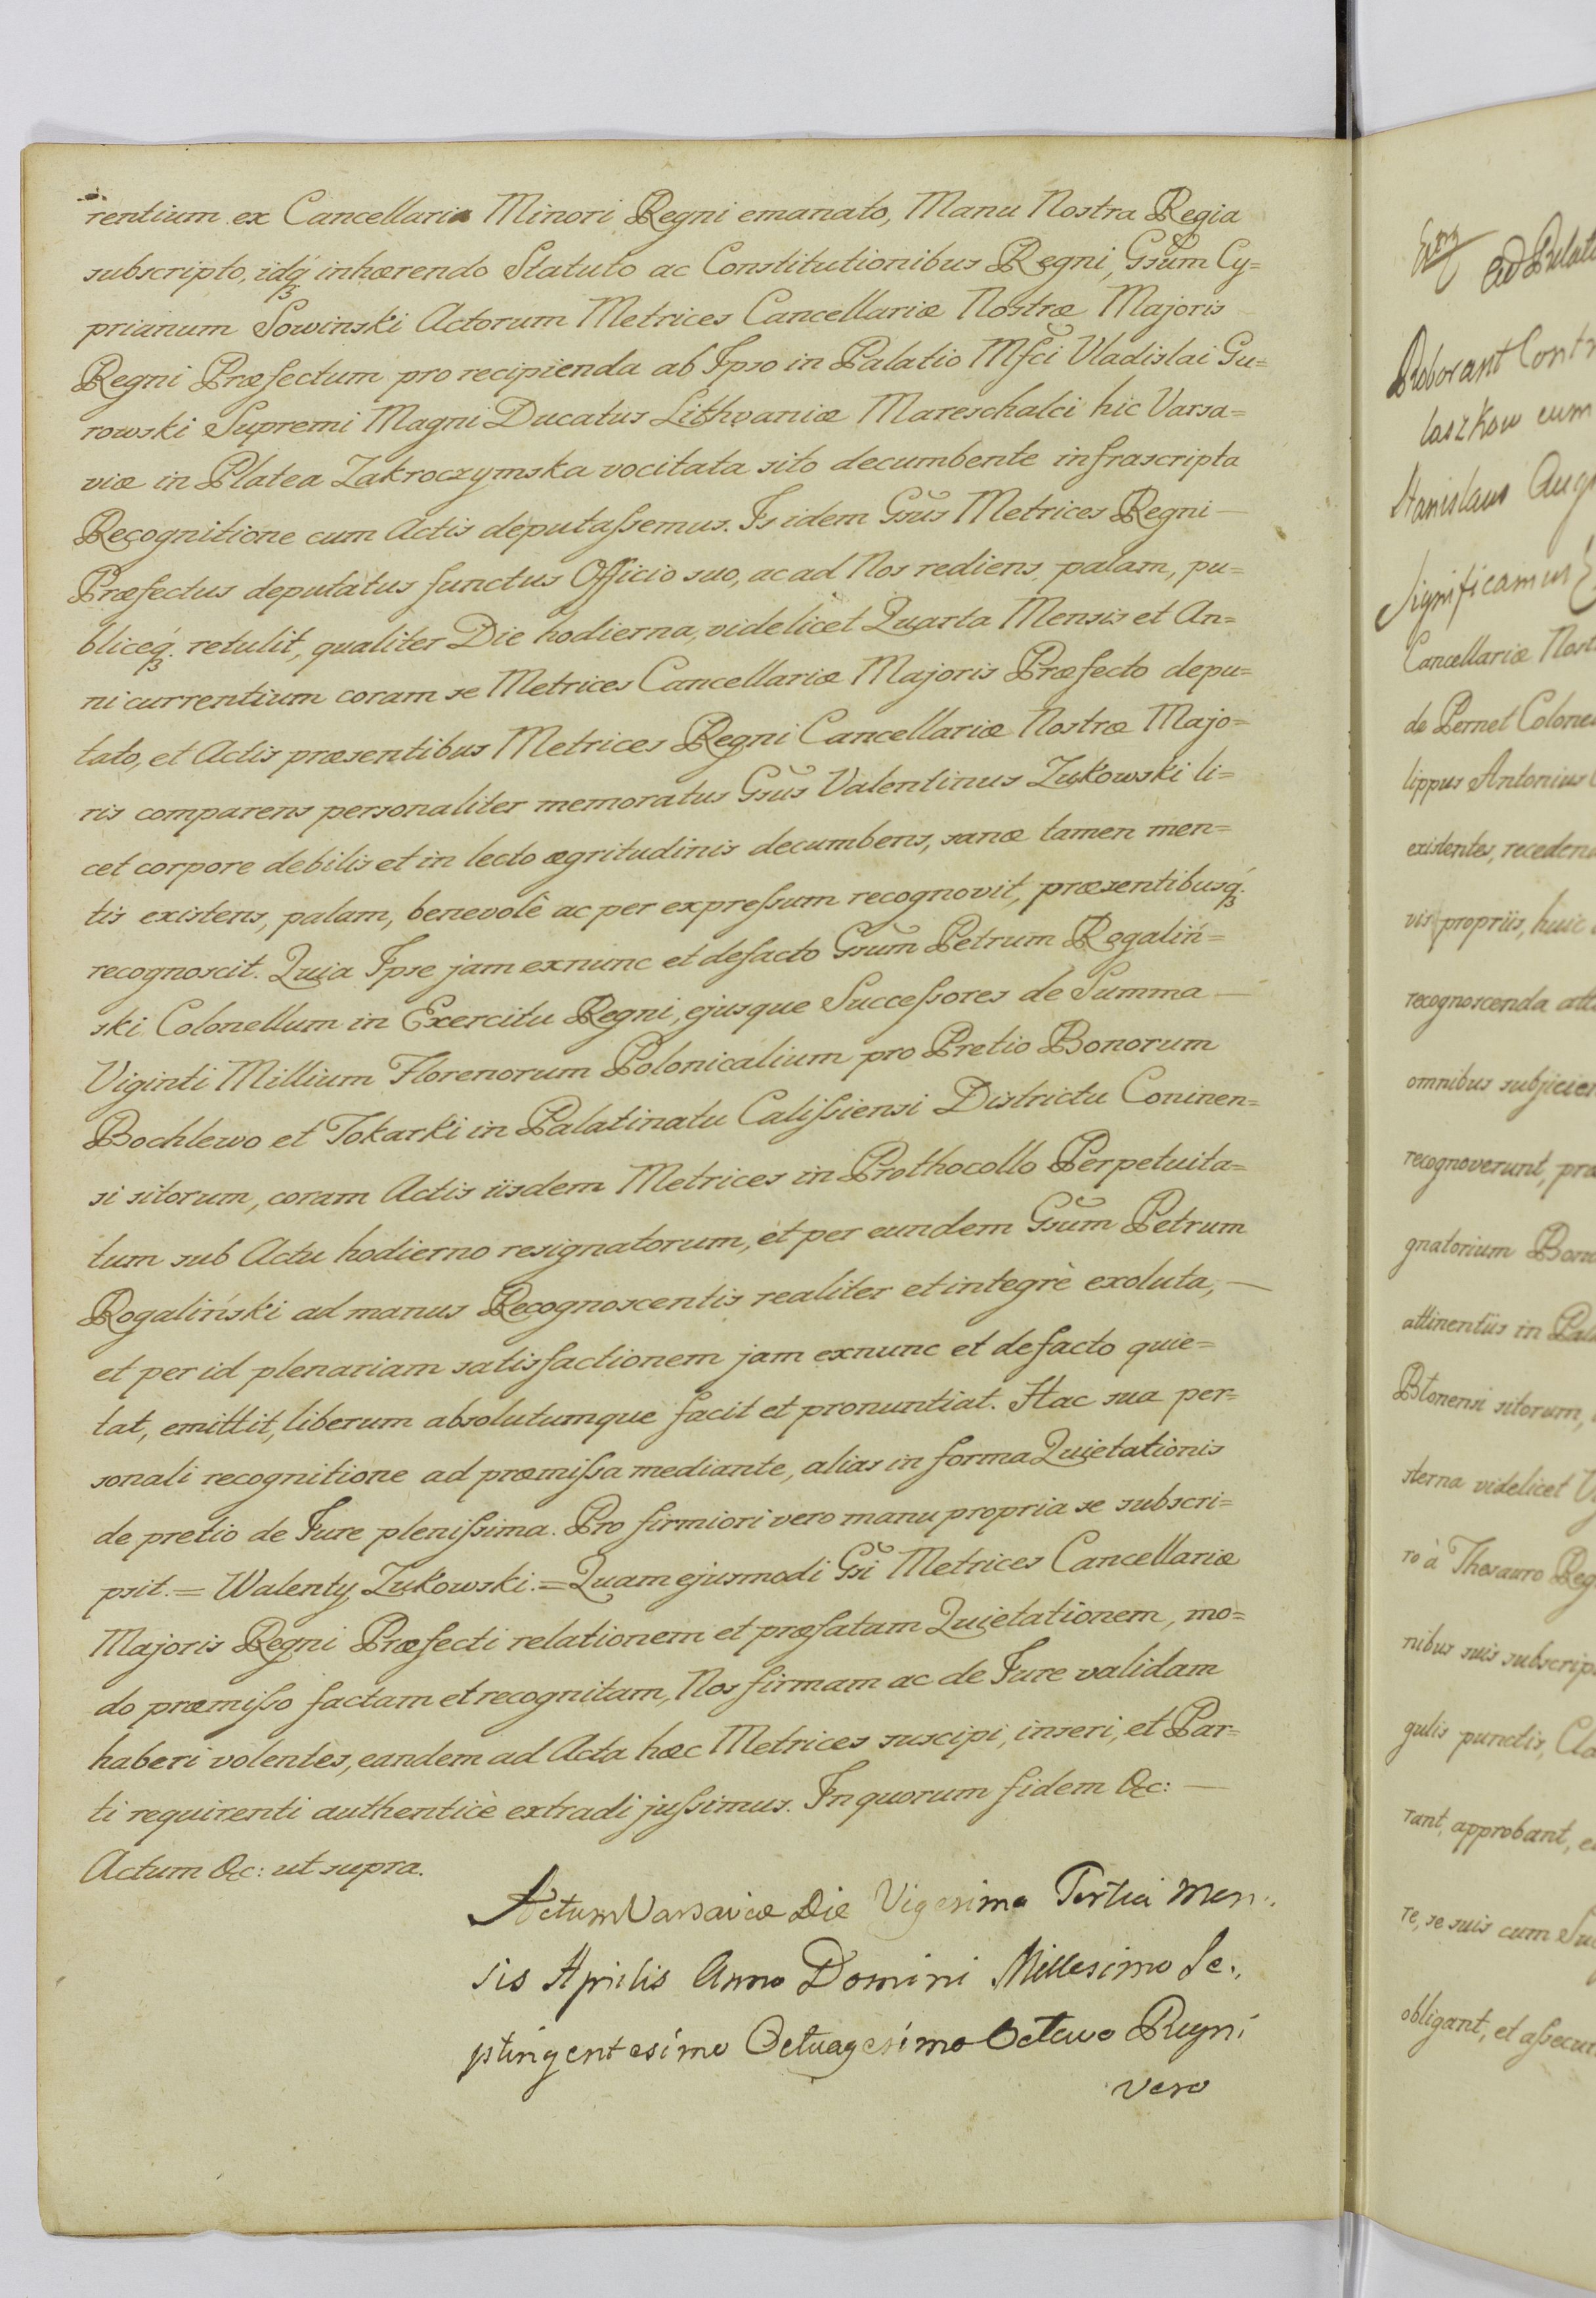 rentium ex Cancellaria Minori Regni emanato, Manu Nostra Regia
subscripto, idq́ꝫ inhærendo Statuto ac Constitutionibus Regni, Gsum̃ Cy=
prianum Sowinski Actorum Metrices Cancellariæ Nostræ Majoris
Regni Præfectum pro recipienda ab Ipso in Palatio Mfci Vladislai Gu=
rowski Supremi Magni Ducatus Lithvaniæ Mareschalci hic Varsa=
viæ in Platea Zakroczymska vocitata sito decumbente infrascripta
Recognitione cum Actis deputaſsemus. Is idem Gsũs Metrices Regni —
Præfectus deputatus functus Officio suo, ac ad Nos rediens palam, pu=
bliceq́ꝫ. retulit, qualiter Die hodierna, videlicet Quarta Mensis et An=
ni currentium coram se Metrices Cancellariæ Majoris Præfecto depu=
tato, et Actis præsentibus Metrices Regni Cancellariæ Nostræ Majo=
ris comparens personaliter memoratus Gsũs Valentinus Zukowski li=
cet corpore debilis et in lecto ægritudinis decumbens, sanæ tamen men=
tis existens, palam, benevolè ac per expreſsum recognovit, præsentibusq́ꝫ.
recognoscit. Quia Ipse jam exnunc et defacto Gsũm Petrum Rogaliń=
ski Colonellum in Exercitu Regni, ejusque Succeſsores de Summa —
Viginti Millium Florenorum Polonicalium pro Pretio Bonorum
Bochlewo et Tokarki in Palatinatu Caliſsiensi Districtu Coninen=
si sitorum, coram Actis iisdem Metrices in Prothocollo Perpetuita=
tum sub Actu hodierno resignatorum, et per eundem Gsũm Petrum
Rogaliński ad manus Recognoscentis realiter et integrè exoluta, —
et per id plenariam satisfactionem jam exnunc et defacto quie=
tat, emittit, liberum absolutumque facit et pronuntiat. Hac sua per=
sonali recognitione ad præmiſsa mediante, alias in forma Quietationis
de pretio de Jure pleniſsima. Pro firmiori vero manu propria se subscri=
psit. = Walenty Zukowski. = Quam ejusmodi Gsĩ Metrices Cancellariæ
Majoris Regni Præfecti relationem et præfatam Quietationem, mo=
do præmiſso factam et recognitam, Nos firmam ac de Jure validam
haberi volentes, eandem ad Acta hæc Metrices suscipi, inseri, et Par=
ti requirenti authenticè extradi juſsimus. In quorum fidem &c: —
Actum &c: ut supra.
Actum Varsaviæ Die Vigesima Tertia Men:
sis Aprilis Anno Domini Millesimo Se:
ptingentesimo Octuagesimo Octavo Regni
vero
Roborant Contr
laszkow cum
Stanislaus Aug
Significamus
Cancellariæ Nost
de Pernet Colone
lippus Antonius
existentes, recedend
vis propriis, huic
recognoscenda att
omnibus subjicien
recognoverunt, præ
gnatorium Bono
attinentiis in Pala
Błonensi sitorum,
sterna videlicet V
ro à Thesauro Reg
nibus suis subscrip
gulis punctis, Cla
rant, approbant, e
re, se suis cum Suc
obligant, et aſsecur